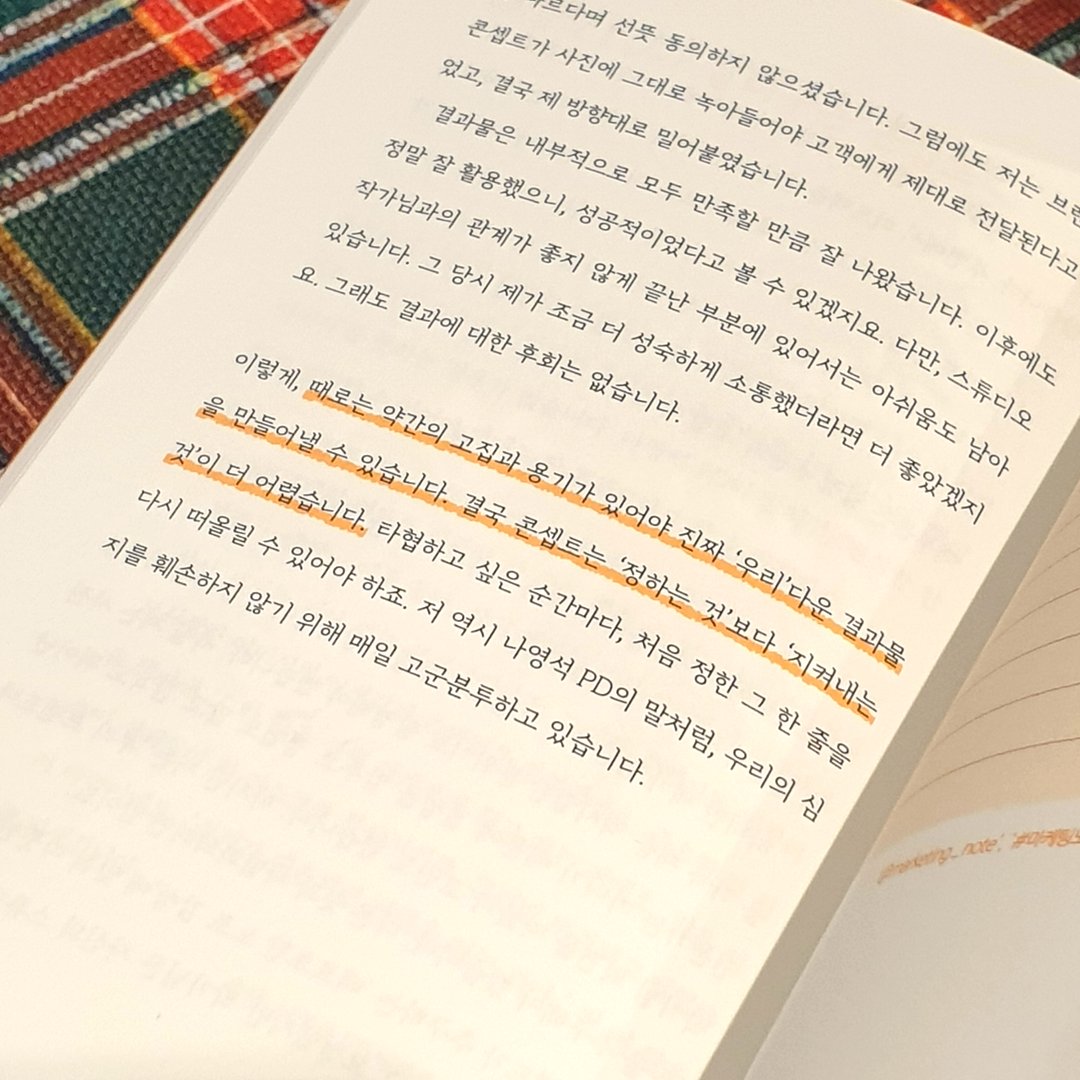 다르다며 선뜻 동의하지 않으셨습니다. 그럼에도 저는 브랜
콘셉트가 사진에 그대로 녹아들어야 고객에게 제대로 전달된다고
었고, 결국 제 방향대로 밀어붙였습니다.
결과물은 내부적으로 모두 만족할 만큼 잘 나왔습니다. 이후에도
정말 잘 활용했으니, 성공적이었다고 볼 수 있겠지요. 다만, 스튜디오
작가님과의 관계가 좋지 않게 끝난 부분에 있어서는 아쉬움도 남아
있습니다. 그 당시 제가 조금 더 성숙하게 소통했더라면 더 좋았겠지
요. 그래도 결과에 대한 후회는 없습니다.
이렇게, 때로는 약간의 고집과 용기가 있어야 진짜 ‘우리’다운 결과물
을 만들어낼 수 있습니다. 결국 콘셉트는 ‘정하는 것’보다 ‘지켜내는
것’이 더 어렵습니다. 타협하고 싶은 순간마다, 처음 정한 그 한 줄을
다시 떠올릴 수 있어야 하죠. 저 역시 나영석 PD의 말처럼, 우리의 심
지를 훼손하지 않기 위해 매일 고군분투하고 있습니다.
@marketing_note’, ‘#마케팅노